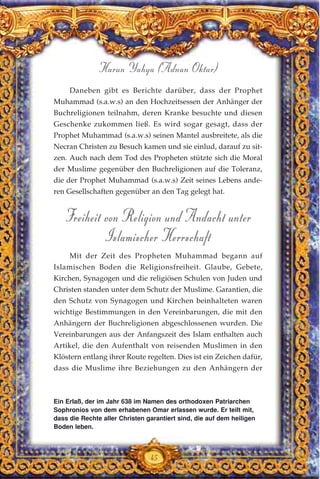 Harun Yahya (Adnan Oktar)
Daneben gibt es Berichte darüber, dass der Prophet
Muhammad (s.a.w.s) an den Hochzeitsessen der Anhänger der
Buchreligionen teilnahm, deren Kranke besuchte und diesen
Geschenke zukommen ließ. Es wird sogar gesagt, dass der
Prophet Muhammad (s.a.w.s) seinen Mantel ausbreitete, als die
Necran Christen zu Besuch kamen und sie einlud, darauf zu sit-
zen. Auch nach dem Tod des Propheten stützte sich die Moral
der Muslime gegenüber den Buchreligionen auf die Toleranz,
die der Prophet Muhammad (s.a.w.s) Zeit seines Lebens ande-
ren Gesellschaften gegenüber an den Tag gelegt hat.
Freiheit von Religion und Andacht unter
Islamischer Herrschaft
Mit der Zeit des Propheten Muhammad begann auf
Islamischen Boden die Religionsfreiheit. Glaube, Gebete,
Kirchen, Synagogen und die religiösen Schulen von Juden und
Christen standen unter dem Schutz der Muslime. Garantien, die
den Schutz von Synagogen und Kirchen beinhalteten waren
wichtige Bestimmungen in den Vereinbarungen, die mit den
Anhängern der Buchreligionen abgeschlossenen wurden. Die
Vereinbarungen aus der Anfangszeit des Islam enthalten auch
Artikel, die den Aufenthalt von reisenden Muslimen in den
Klöstern entlang ihrer Route regelten. Dies ist ein Zeichen dafür,
dass die Muslime ihre Beziehungen zu den Anhängern der
Ein Erlaß, der im Jahr 638 im Namen des orthodoxen Patriarchen
Sophronios von dem erhabenen Omar erlassen wurde. Er teilt mit,
dass die Rechte aller Christen garantiert sind, die auf dem heiligen
Boden leben.
45